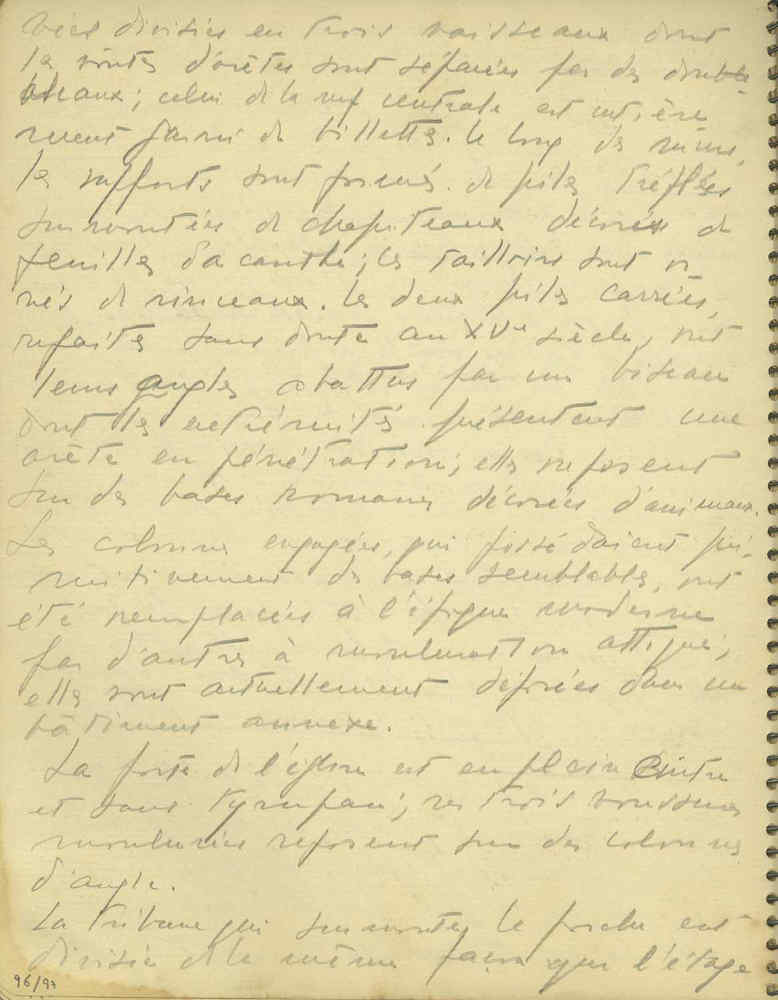 vées divisées en trois vaisseaux dont
les voûtes d'arêtes sont séparées par des double
aux; celui de la nef centrale est entière
ment garni de billettes. Le long des murs,
les supports sont formés de piles tréflées
surmontées de chapiteaux décorés de
feuilles d'acanthe; les tailloirs sont or
nés de rinceaux. Les deux piles carrées,
refaites sans doute au XVe siècle, ont
leurs angles abattus par un biseau
dont les extrémités présentent une
arête en pénétration; elles reposent
sur des bases romanes décorées d'animaux.
Les colonnes engagées, qui possédaient pri-
mitivement des bases semblables, ont
été remplacées à l'époque moderne
par d'autres à mouluration attique;
elles sont actuellement déposées dans un
bâtiment annexe.
La porte de l'église est en plein cintre
et sans tympan; ses trois voussures
moulurées reposent sur des colonnes
d'angle.
La tribune qui surmonte le porche est
divisée de la même façon que l'étage
96/97